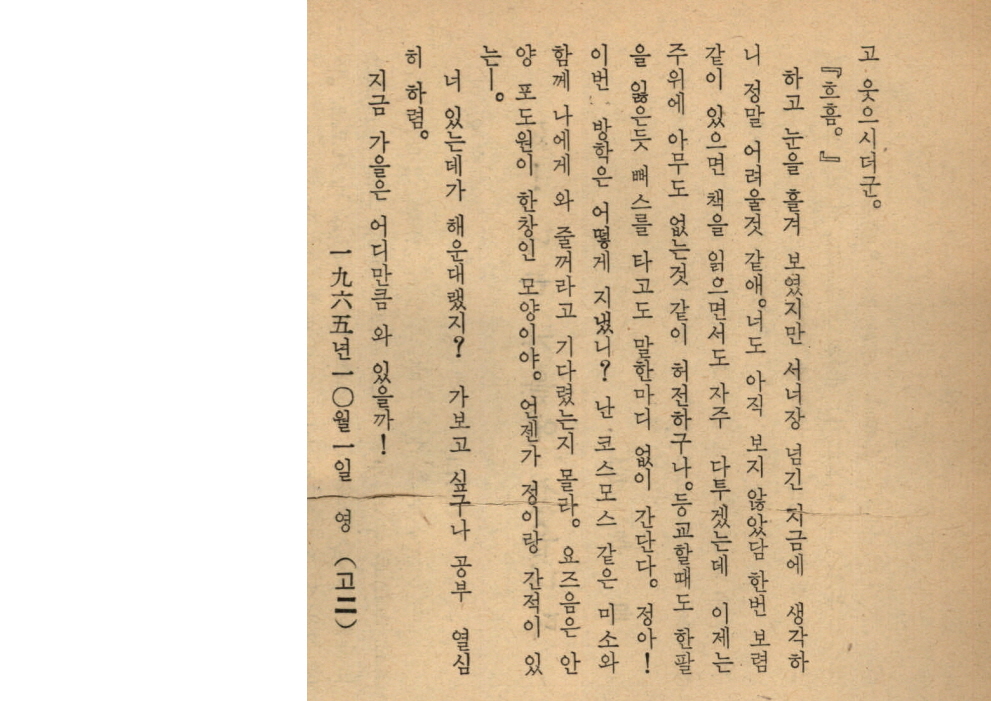 고 웃으시더군。
『흐흠。』
하고 눈을 흘겨 보였지만 서너장 넘긴 지금에 생각하
니 정말 어려울것 같애。너도 아직 보지 않았담 한번 보렴
같이 있으면 책을 읽으면서도 자주 다투겠는데 이제는
주위에 아무도 없는것 같이 허전하구나。등교할때도 한팔
을 잃은듯 뻐스를 타고도 말한마디 없이 간단다。정아!
이번 방학은 어떻게 지냈니? 난 코스모스 같은 미소와
함께 나에게 와 줄꺼라고 기다렸는지 몰라。요즈음은 안
양 포도원이 한창인 모양이야。언젠가 정이랑 간적이 있
는―。
너 있는데가 해운대랬지? 가보고 싶구나 공부 열심
히 하렴。
지금 가을은 어디만큼 와 있을까!
一九六五년一○월一일 영 (고二)